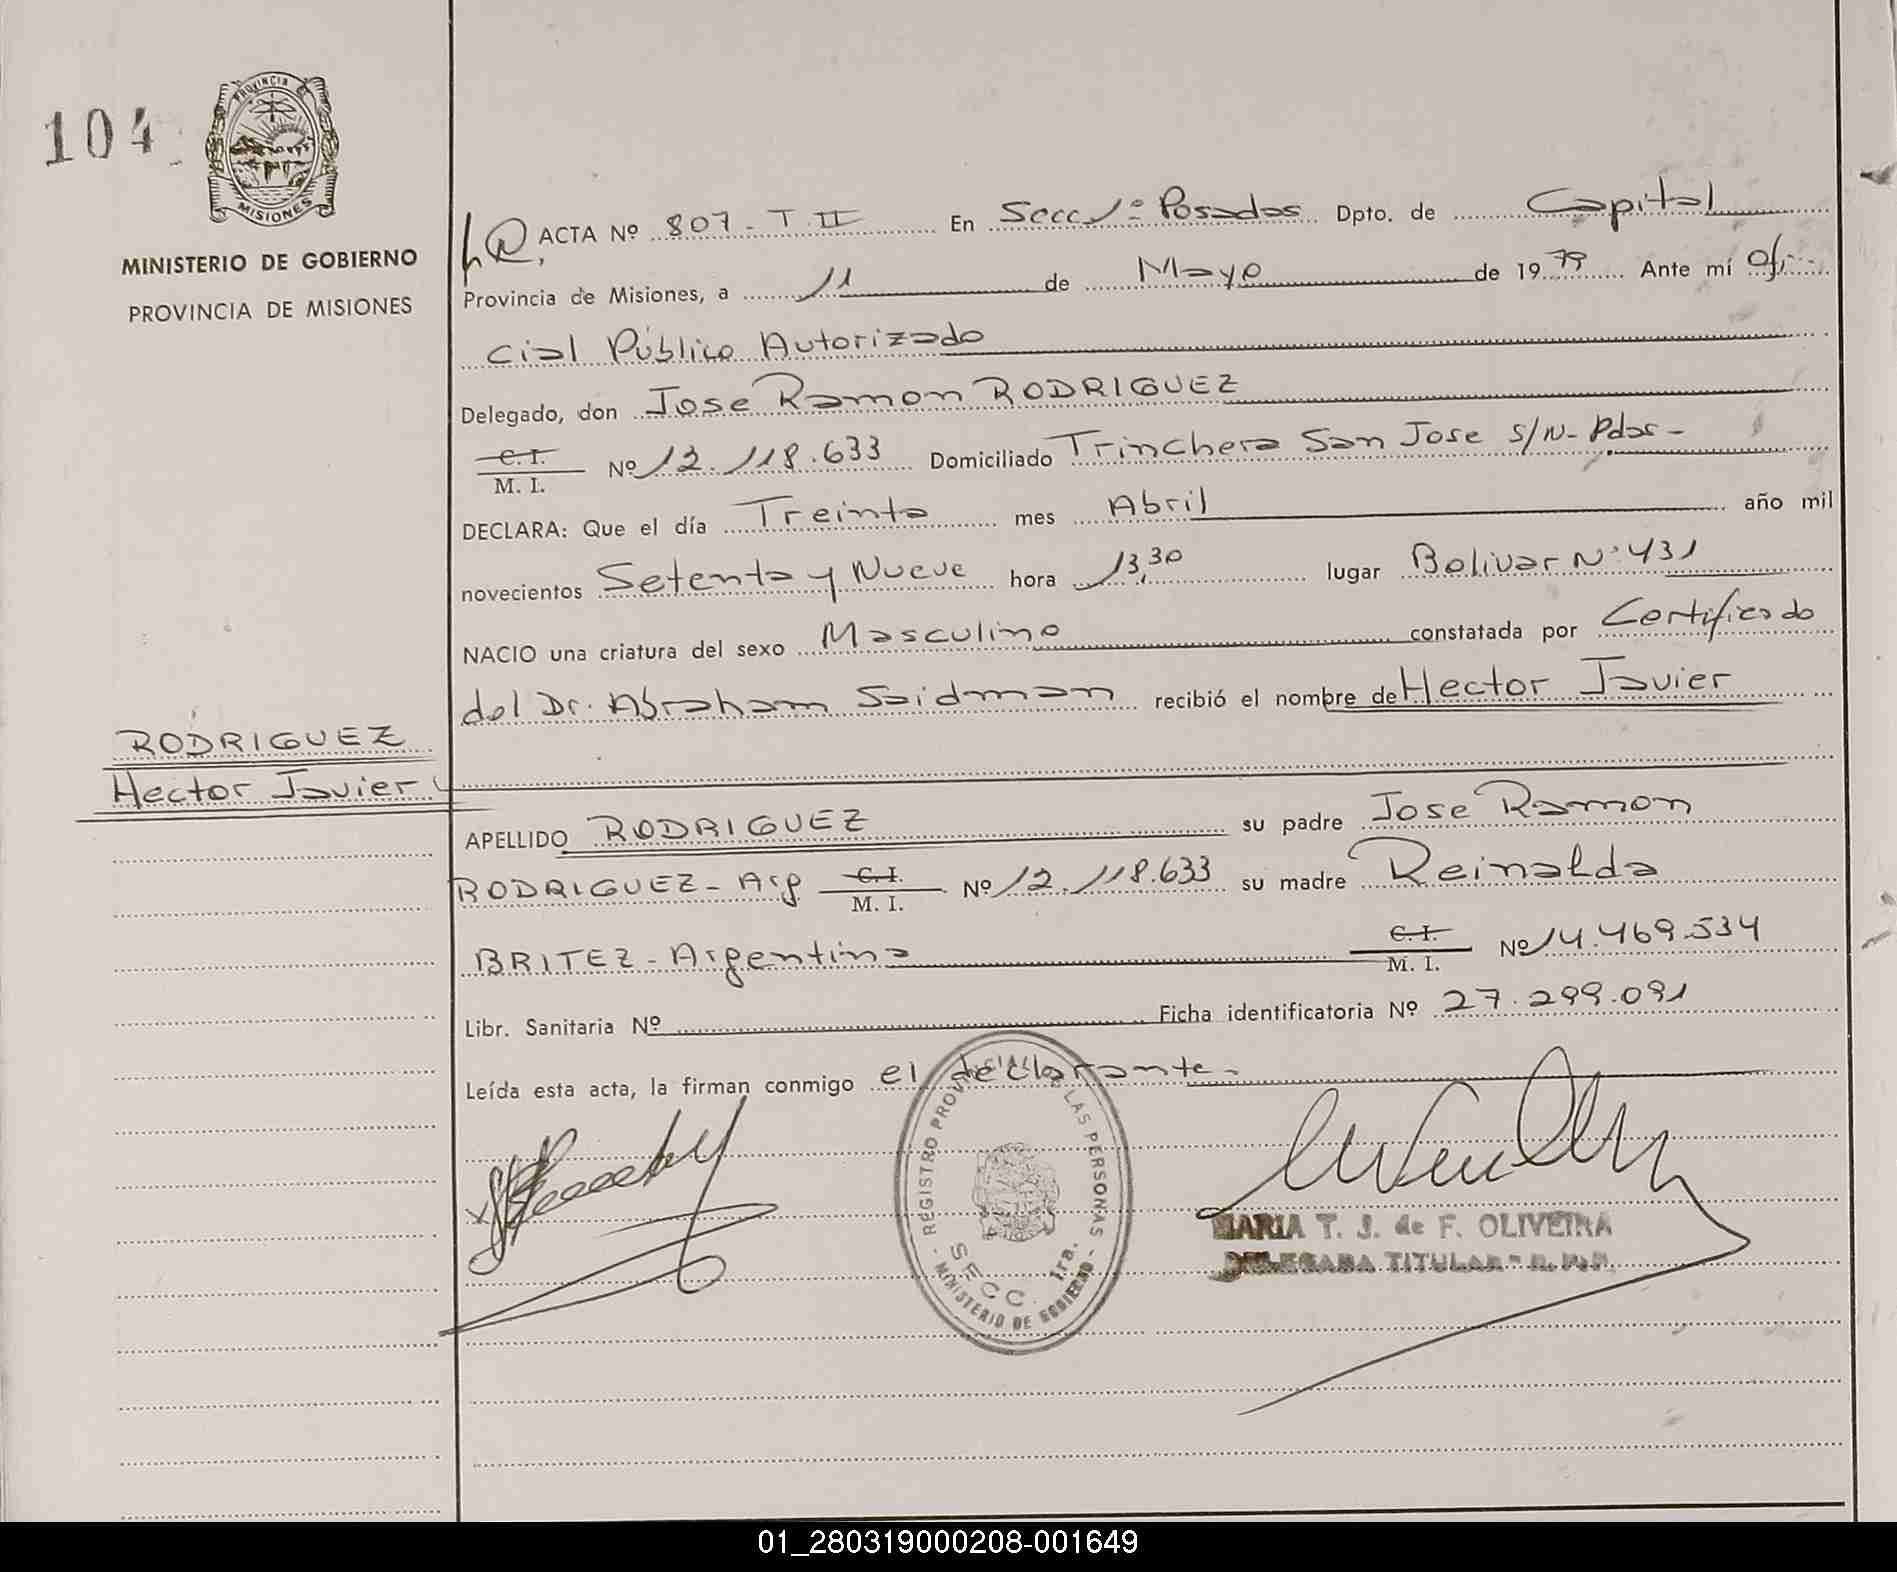 104
PROVINCIA DE
MISIONES
MINISTERIO DE GOBIERNO
PROVINCIA DE MISIONES
ACTA Nº 807 - T II En Secc 1º Posadas Dpto. de Capital
Provincia de Misiones, a 11 de Mayo de 1979 Ante mí Ofi-
cial Público Autorizado
Delegado, don Jose Ramon RODRIGUEZ
C. I.
M. I. Nº 12.118.633 Domiciliado Trinchera San Jose s/N - Pdas -
DECLARA: Que el día Treinta mes Abril año mil
novecientos Setenta y Nueve hora 13,30 lugar Bolivar Nº 431
NACIO una criatura del sexo Masculino constatada por Certificado
del Dr. Abraham Saidman recibió el nombre de Hector Javier
RODRIGUEZ
Hector Javier
APELLIDO RODRIGUEZ su padre Jose Ramon
RODRIGUEZ - Arg C. I.
M. I. Nº 12.118.633 su madre Reinalda
BRITEZ - Argentina C. I.
M. I. Nº 14.469.534
Libr. Sanitaria Nº Ficha identificatoria Nº 27.299.091
Leída esta acta, la firman conmigo el declarante -
REGISTRO PROVINCIAL DE LAS PERSONAS
SECC. 1ra.
- MINISTERIO DE GOBIERNO -
MARIA T. J. de F. OLIVEIRA
DELEGADA TITULAR - R. P. P.
01_280319000208-001649